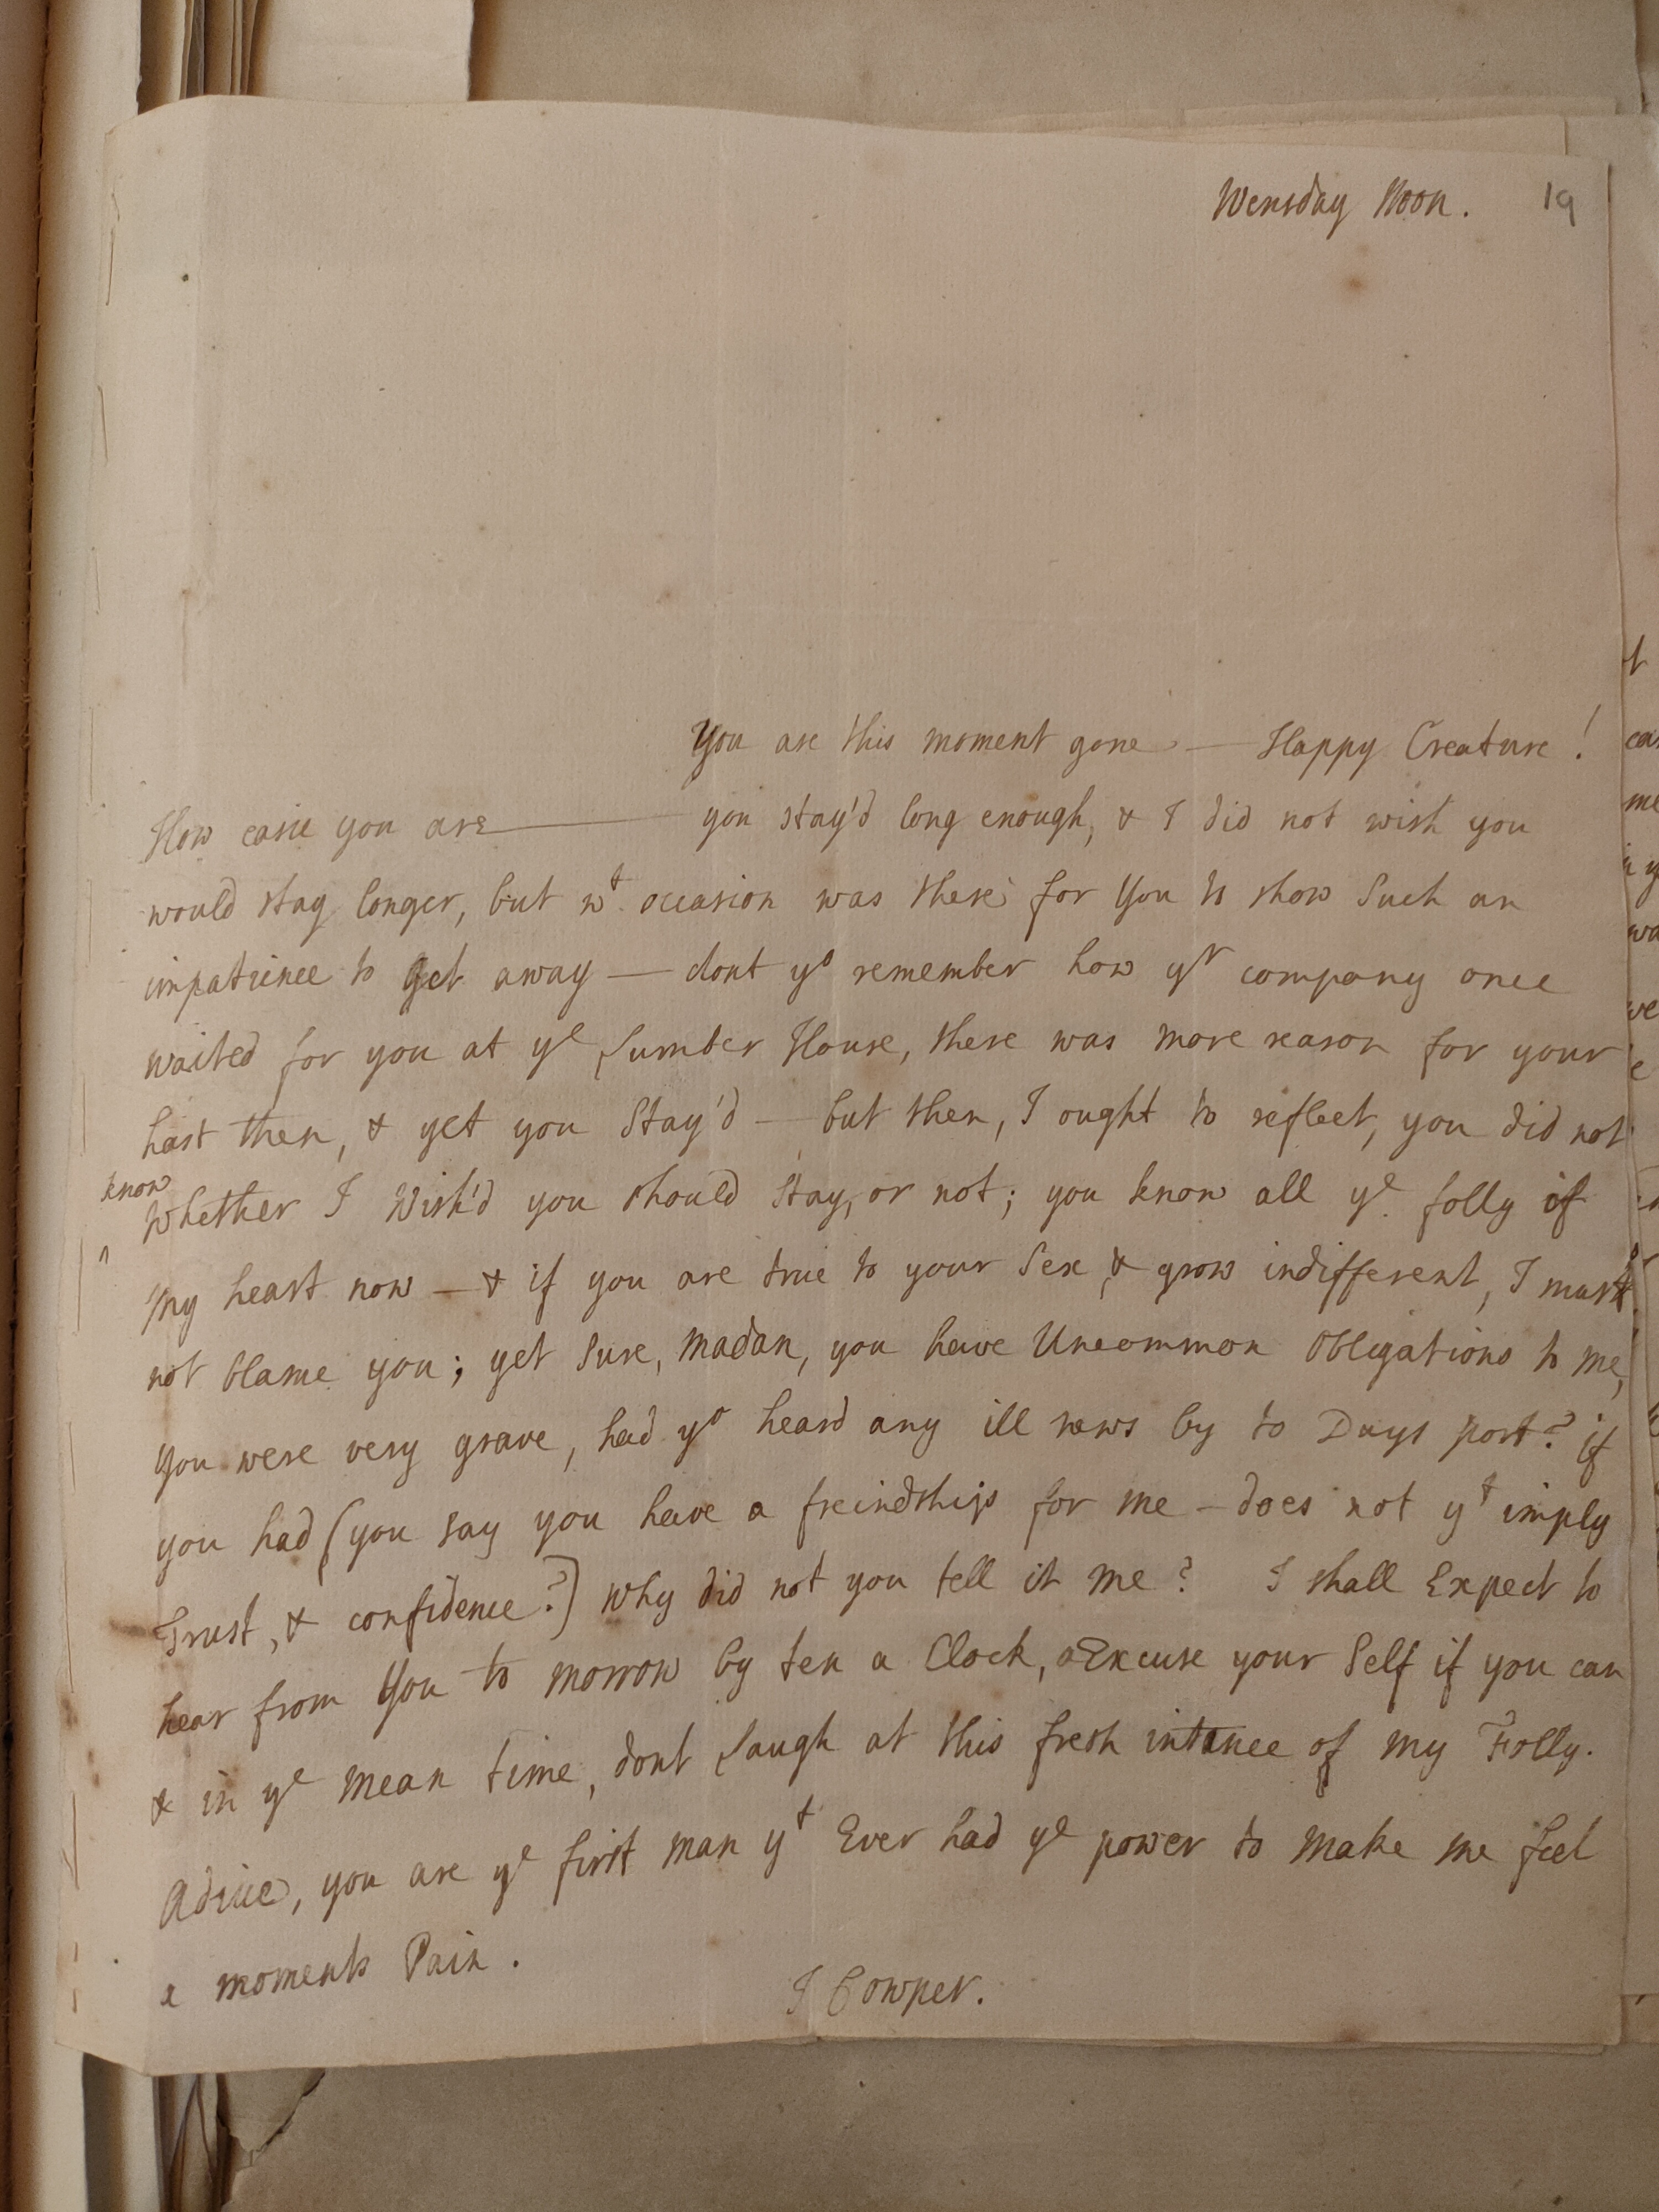 Wensday Noon. 19
You are this moment gone — Happy Creature!
How easie you are — you stay'd long enough, & I did not wish you
would stay longer, but wt occasion was there for you to show Such an
impatience to get away — dont yo remember how yr company once
waited for you at ye Lumber House, there was more reason for your
hast then, & yet you Stay'd — but then, I ought to reflect, you did not
know
^ whether I Wish'd you should stay, or not; you know all ye folly of
My heart now — & if you are true to your Sex & grow indifferent, I must
not blame you; yet Sure, Madan, you have Uncommon Obligations to me,
you were very grave, had yo heard any ill news by to Days post? if
you had (you say you have a freindship for me — does not yt imply
Trust, & confidence?) why did not you tell it me? I shall Expect to
hear from you to morrow by ten a Clock, Excuse your Self if you can
& in ye mean time, dont Laugh at this fresh intance of my Folly.
Adiue, you are ye first man yt Ever had ye power to make me feel
a moments Pain.
J Cowper.